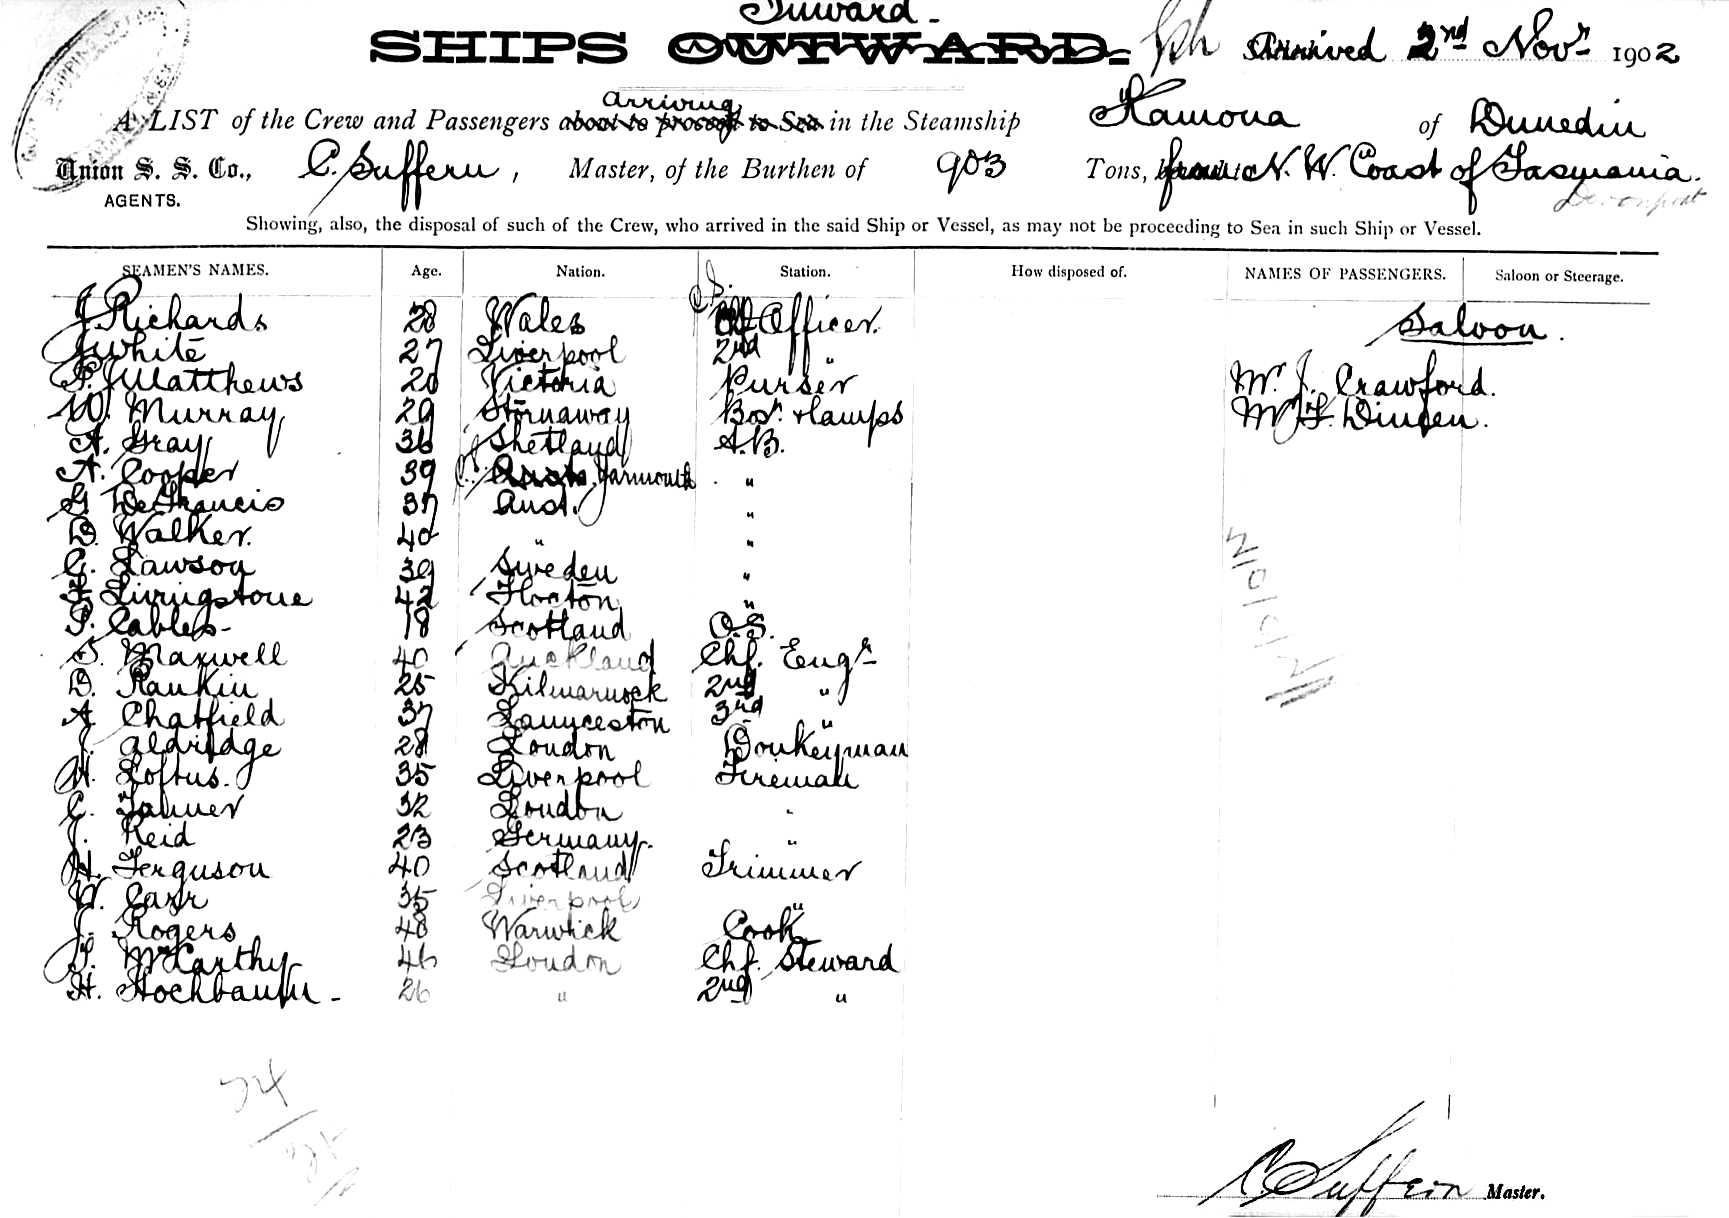 Inward -
SHIPS OUTWARD. Arrived 2nd Novr 1902
arriving
A LIST of the Crew and Passengers about to proceed to Sea in the Steamship Kamona of Dunedin
Union S. S. Co., C. Suffern, Master, of the Burthen of 903 Tons, from N. W. Coast of Tasmania.
AGENTS. Devonport
Showing, also, the disposal of such of the Crew, who arrived in the said Ship or Vessel, as may not be proceeding to Sea in such Ship or Vessel.
SEAMEN'S NAMES. Age. Nation. Station. How disposed of. NAMES OF PASSENGERS. Saloon or Steerage.
J. Richards 28 Wales Officer. Saloon.
J. White 27 Liverpool 2nd "
P. J. Matthews 20 Victoria Purser Mr. J. Crawford.
W. Murray 29 Stornaway Bosn & Lamps Mr F.
A. Gray 36 Shetland A.B.
A. Cooper 39 Yarmouth "
G. De Francis 37 Aust. "
D. Walker. 40 " "
C. Lawson 39 Sweden "
F. Livingstone 42 "
P. Cables- 18 Scotland O.S.
S. Maxwell 40 Auckland Chf. Engr
D. Rankin 25 Kilmarnock 2nd "
A Chatfield 37 Launceston 3rd "
J. Aldridge 28 London Donkeyman
H. Loftus. 35 Liverpool Fireman
C. Tanner 32 London "
J. Reid 23 Germany. "
H. Ferguson 40 Scotland Trimmer
W. Carr 35 Liverpool "
J. Rogers 48 Warwick Cook
T. McCarthy 46 London Chf. Steward
H. Hochbaum - 26 " 2nd "
24
C Suffern Master.